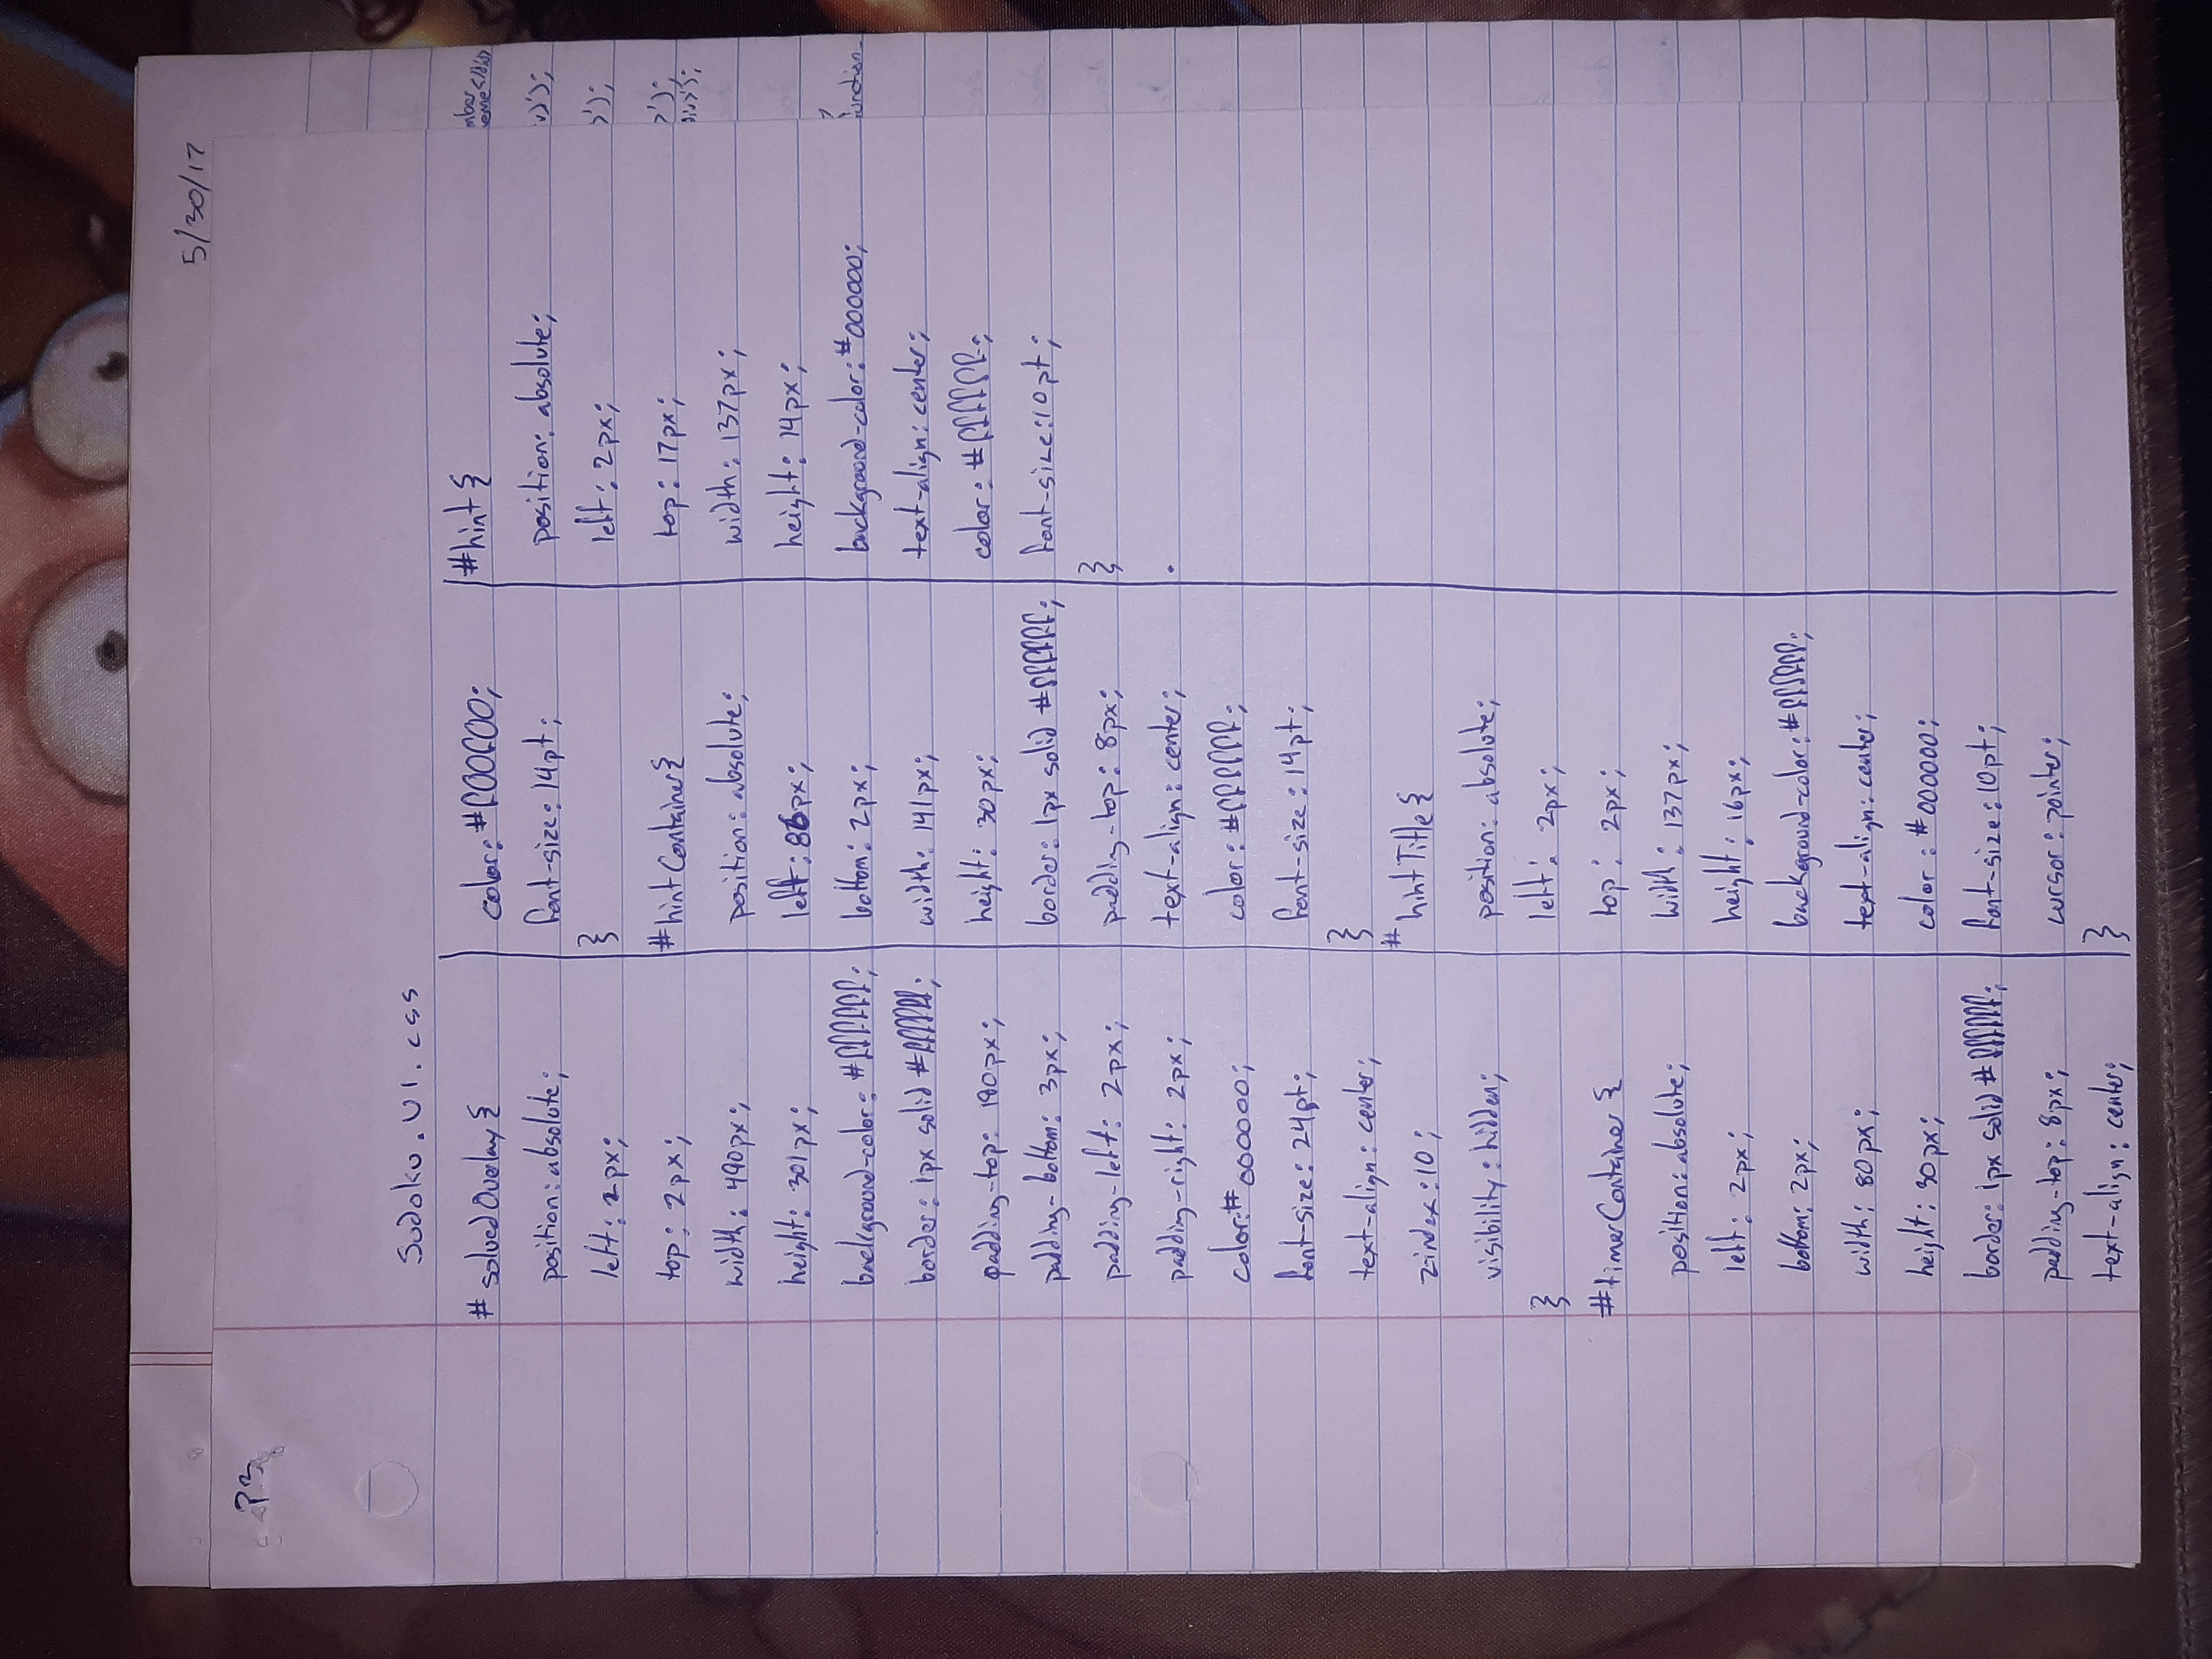 5/30/17
P3
Sudoku.UI.css
# solvedOverlay {
position: absolute;
left: 2px;
top: 2px;
width: 490px;
height: 301px;
background-color: #ffffff;
border: 1px solid #ffffff;
padding-top: 180px;
padding-bottom: 3px;
padding-left: 2px;
padding-right: 2px;
color:#000000;
font-size: 24pt;
text-align: center;
z-index:10;
visibility: hidden;
}
#timerContainer {
position: absolute;
left: 2px;
bottom: 2px;
width: 80px;
height: 30px;
border: 1px solid #ffffff;
padding-top: 8px;
text-align: center;
color: #f00f00;
font-size: 14pt;
}
#hintContainer{
position: absolute;
left: 86px;
bottom: 2px;
width: 141px;
height: 30px;
border: 1px solid #ffffff;
padding-top: 8px;
text-align: center;
color: #ffffff;
font-size: 14pt;
}
# hintTitle {
position: absolute;
left: 2px;
top: 2px;
width: 137px;
height: 16px;
background-color: #ffffff;
text-align: center;
color: #000000;
font-size: 10pt;
cursor: pointer;
}
#hint {
position: absolute;
left: 2px;
top: 17px;
width: 137px;
height: 14px;
background-color: #000000;
text-align: center;
color: #ffffff;
font-size:10pt;
}
.